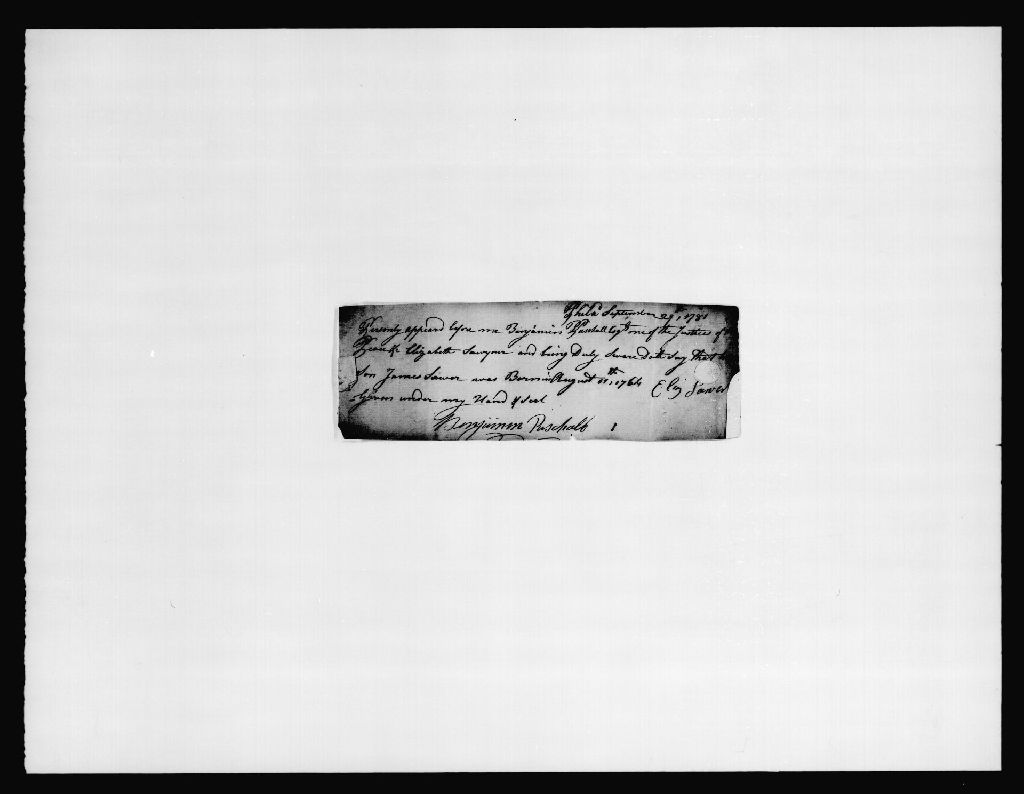 Philad September 29th, 1781
Personly appeard before me Benjamin Paschall Esqr one of the Justices of
Peace &c Elizabeth Sawyer and being Duly Sworn Doth Say that
Son James Sawer was Born in August 1764
Eliz Sawer
Given under my Hand & Seal
Benjamin Paschall